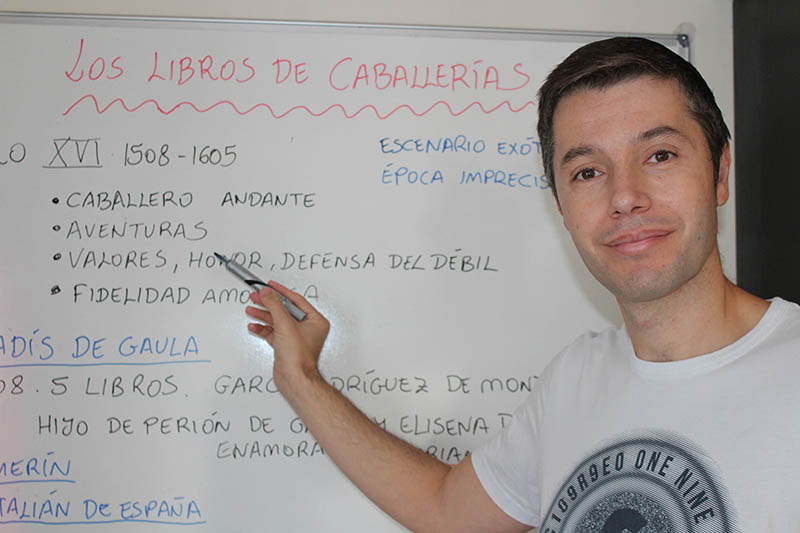 LOS LIBROS DE CABALLERÍAS
LO XVI 1508-1605
ESCENARIO EXÓT
ÉPOCA IMPRECIS
• CABALLERO ANDANTE
• AVENTURAS
• VALORES, HONOR, DEFENSA DEL DÉBIL
• FIDELIDAD AMO SA
ADÍS DE GAULA
08. 5 LIBROS. GARC DRÍGUEZ DE MONT
HIJO DE PERIÓN DE GA Y ELISENA D
ENAMORA RIAN
MERÍN
TALIÁN DE ESPAÑA
S109R9EO ONE NINE